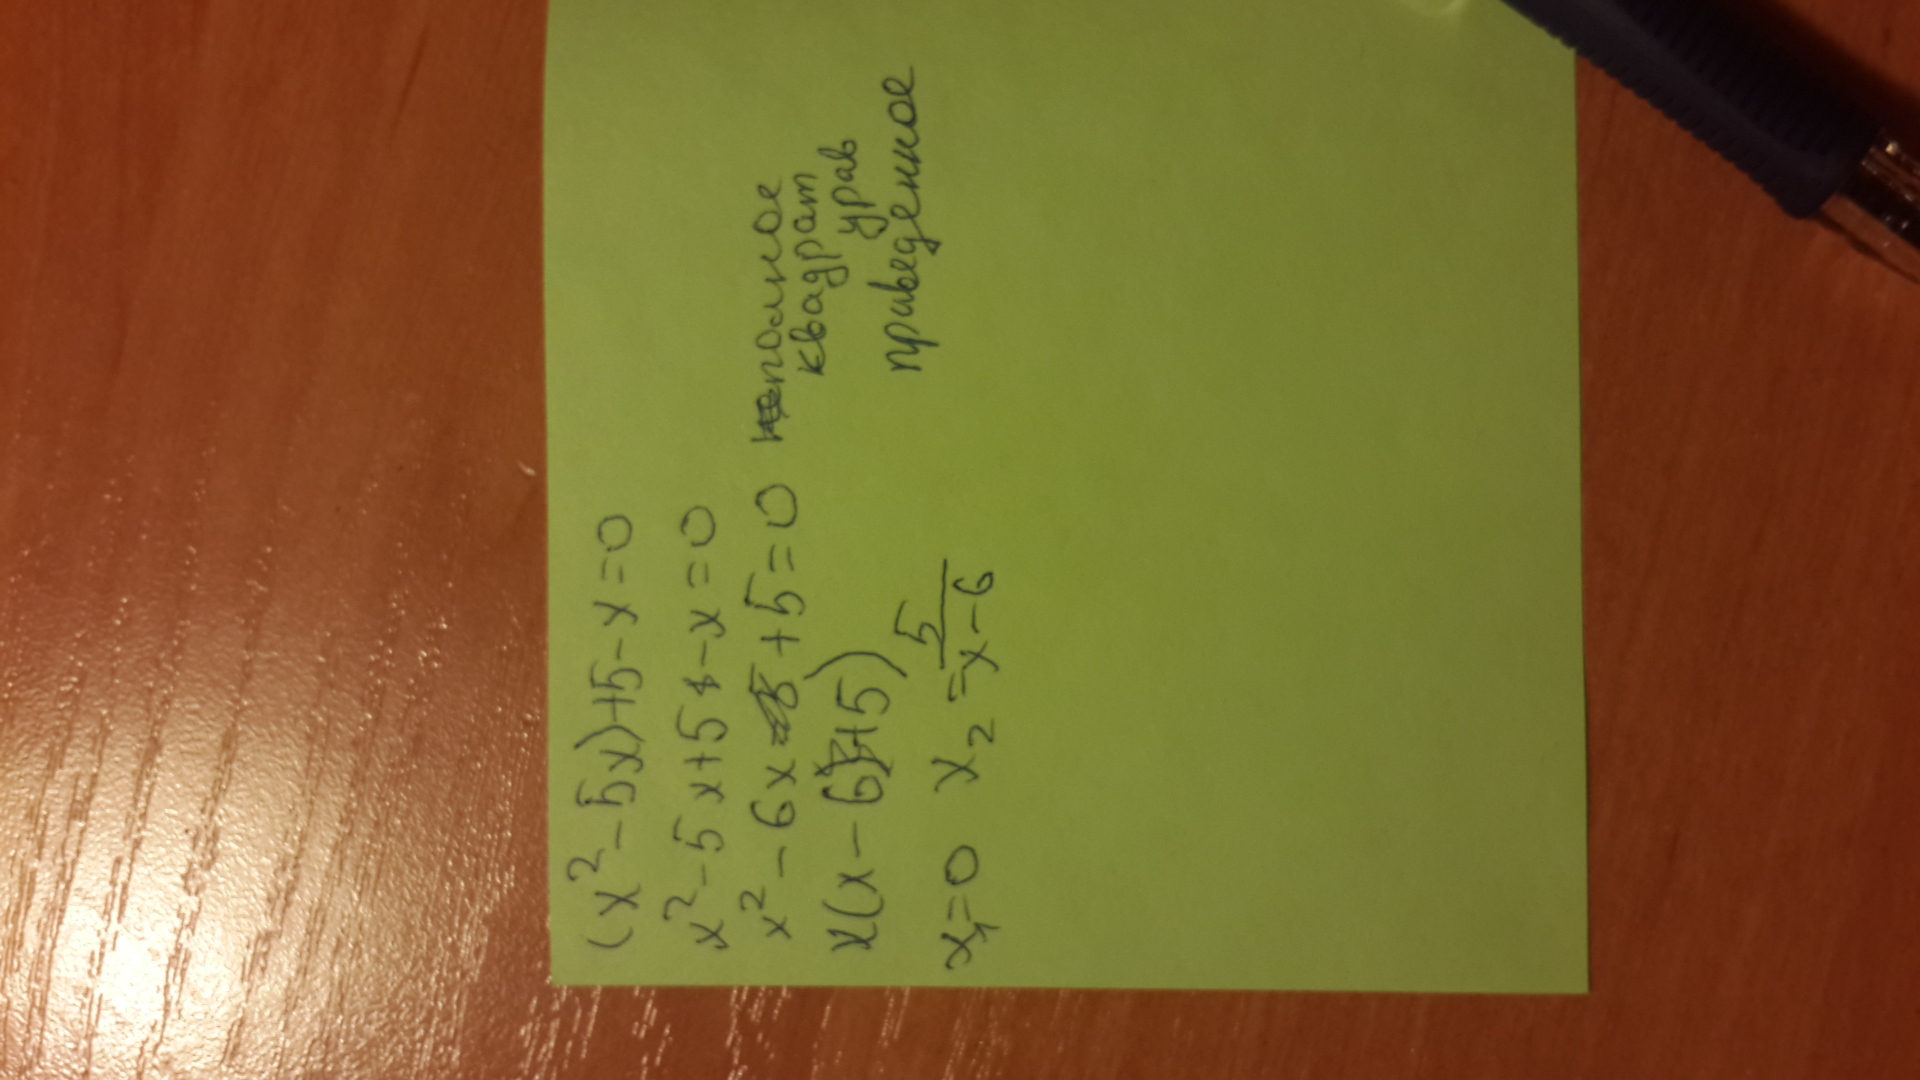 (x² - 5x) + 5 - x = 0
x² - 5x + 5 - x = 0
x² - 6x + 5 = 0 полное
квадрат
урав
приведенное
x(x - 6 + 5)
x₁ = 0 x₂ = 5/(x - 6)